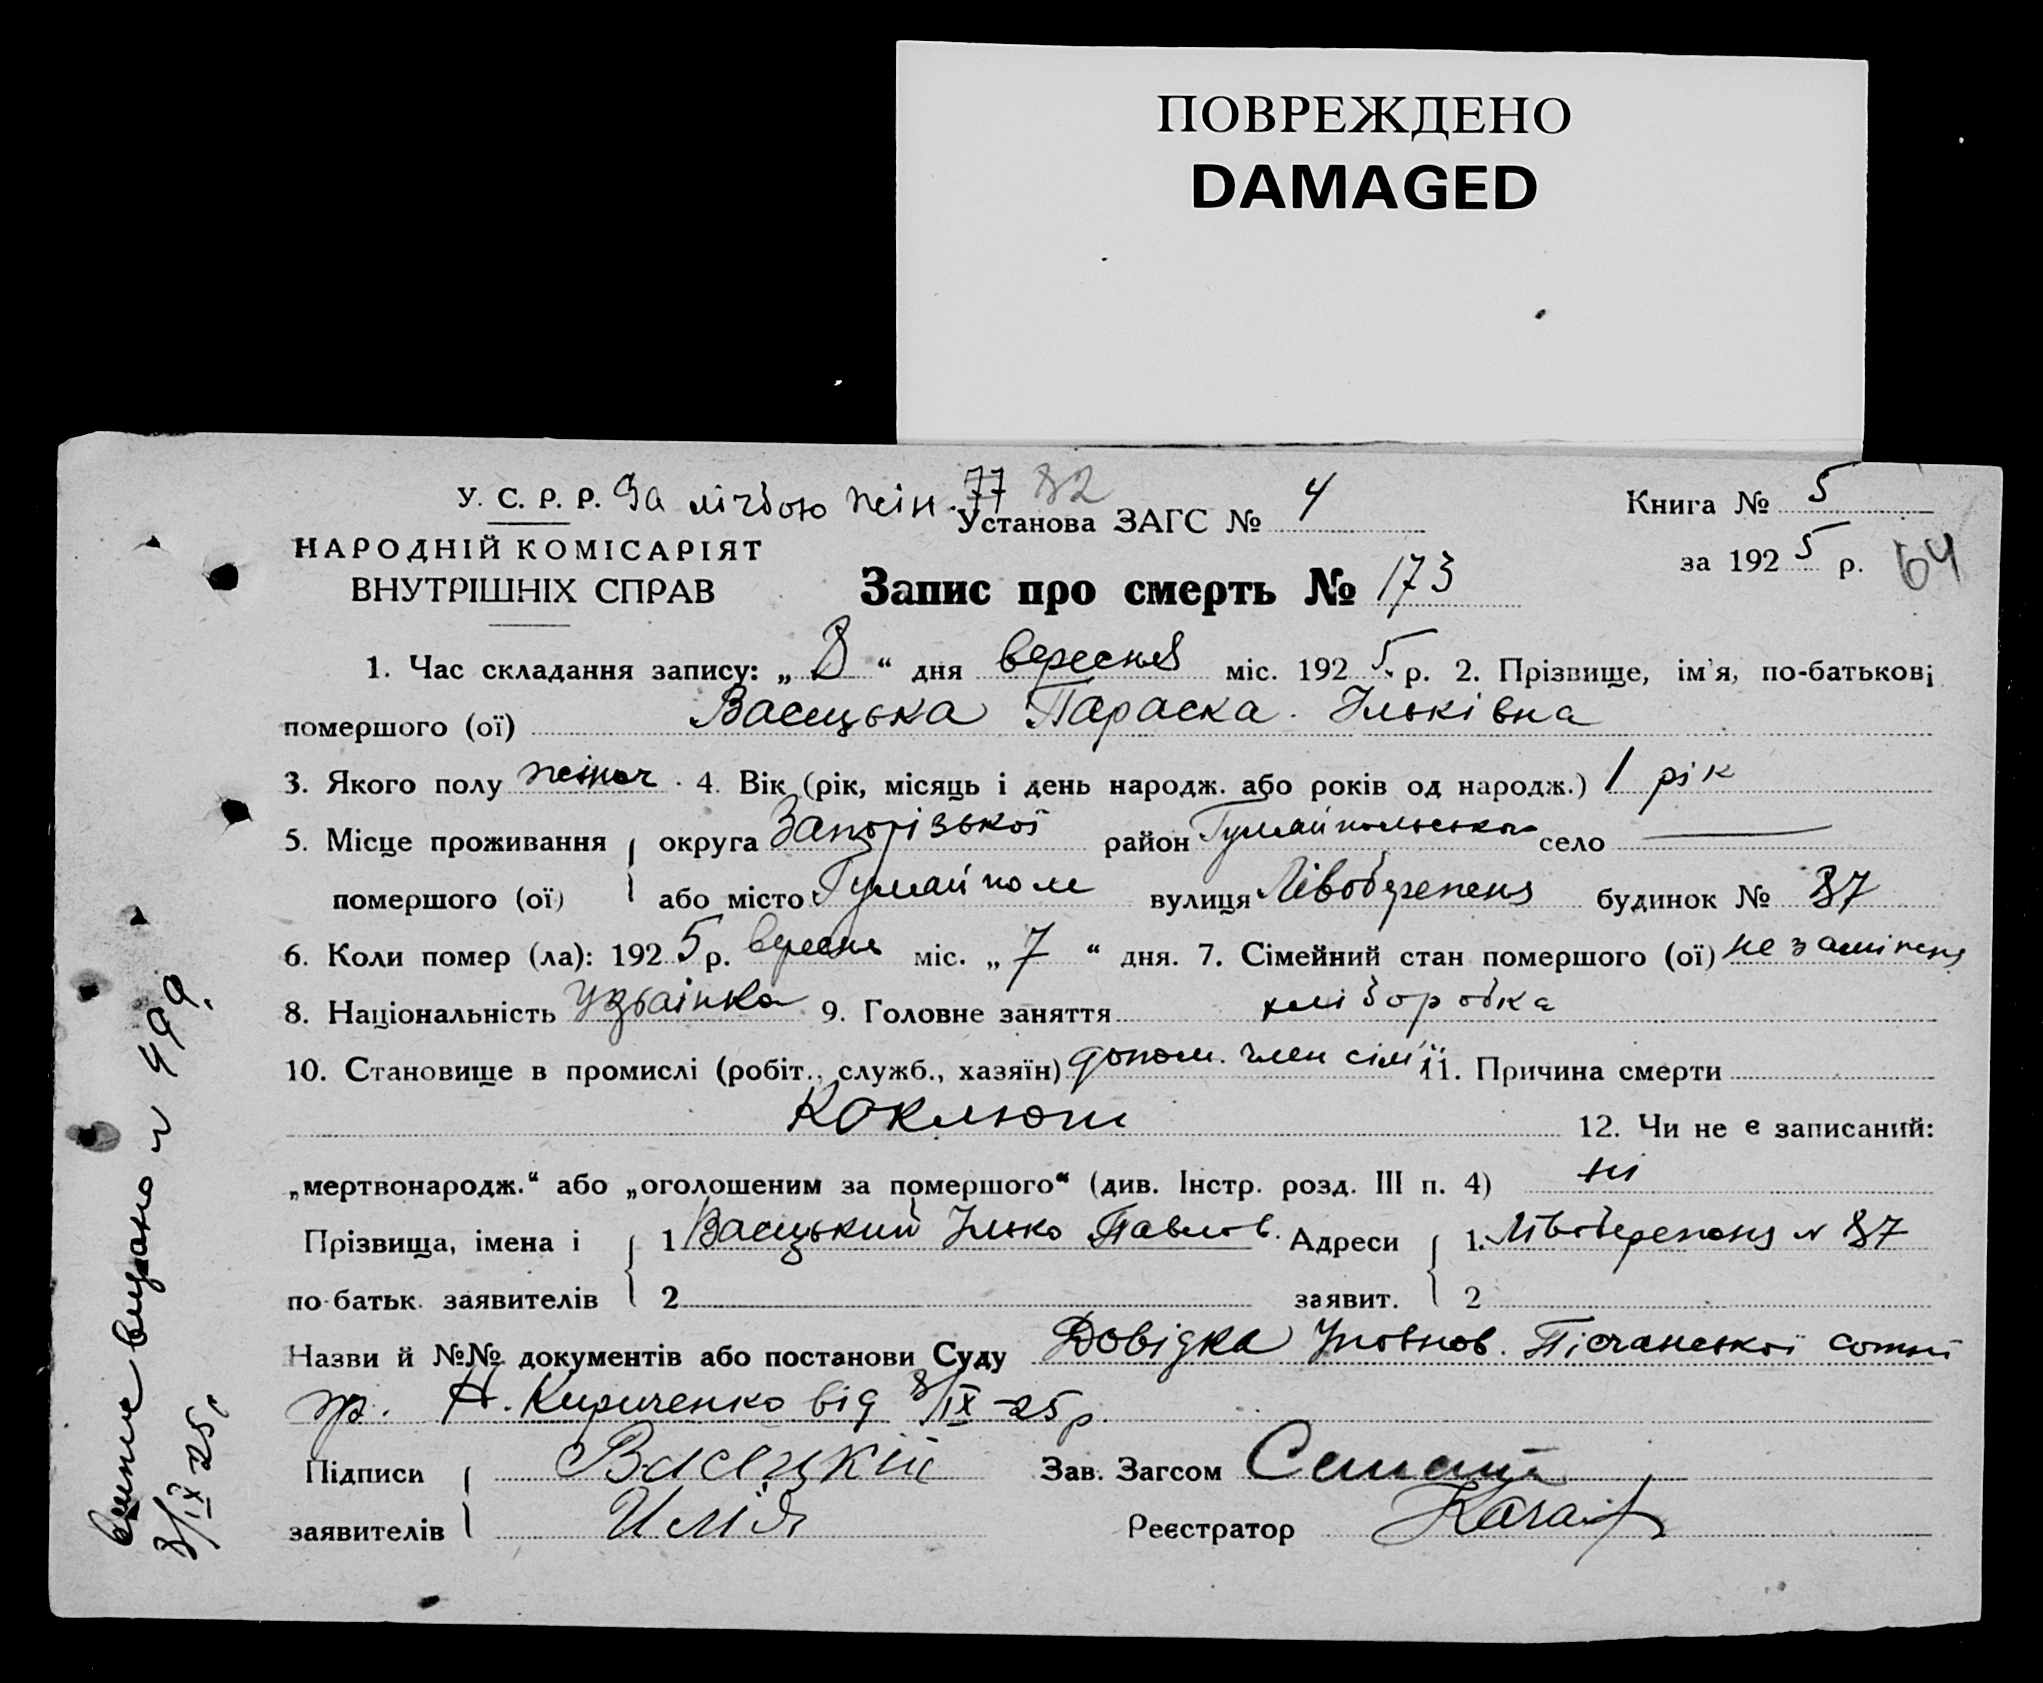 ПОВРЕЖДЕНО
DAMAGED
У. С. Р. Р. За лічбою жін. 77 82
Установа ЗАГС № 4
Книга № 5
НАРОДНІЙ КОМІСАРІЯТ
ВНУТРІШНІХ СПРАВ
за 1925 р. 64
Запис про смерть № 173
1. Час складання запису: „ 8 “ дня вересня міс. 1925 р. 2. Прізвище, ім'я, по-батькові
помершого (ої) Васецька Параска Ільківна
3. Якого полу жіноч. 4. Вік (рік, місяць і день народж. або років од народж.) 1 рік
5. Місце проживання округа Запорізької район Гуляйпольського село —
помершого (ої) або місто Гуляйполе вулиця Лівобережна будинок № 87
6. Коли помер (ла): 1925 р. вересня міс. „ 7 “ дня. 7. Сімейний стан помершого (ої) не заміжня
8. Національність Українка 9. Головне заняття хліборобка
10. Становище в промислі (робіт., служб., хазяїн) допом. член сім'ї 11. Причина смерти
Коклюш 12. Чи не є записаний:
„мертвонародж.“ або „оголошеним за помершого“ (див. Інстр. розд. III п. 4) ні
Прізвища, імена і 1 Васецький Ілько Павлов. Адреси 1. Лівобережна № 87
по-батьк. заявителів 2 заявит. 2
Назви й №№ документів або постанови Суду Довідка Уповнов. Пісчанської сотні
гр. Н. Кириченко від 8/IX-25 р.
Підписи Васецкий Зав. Загсом
заявителів Илія Реєстратор
видано № 499
8/IX 25 р.